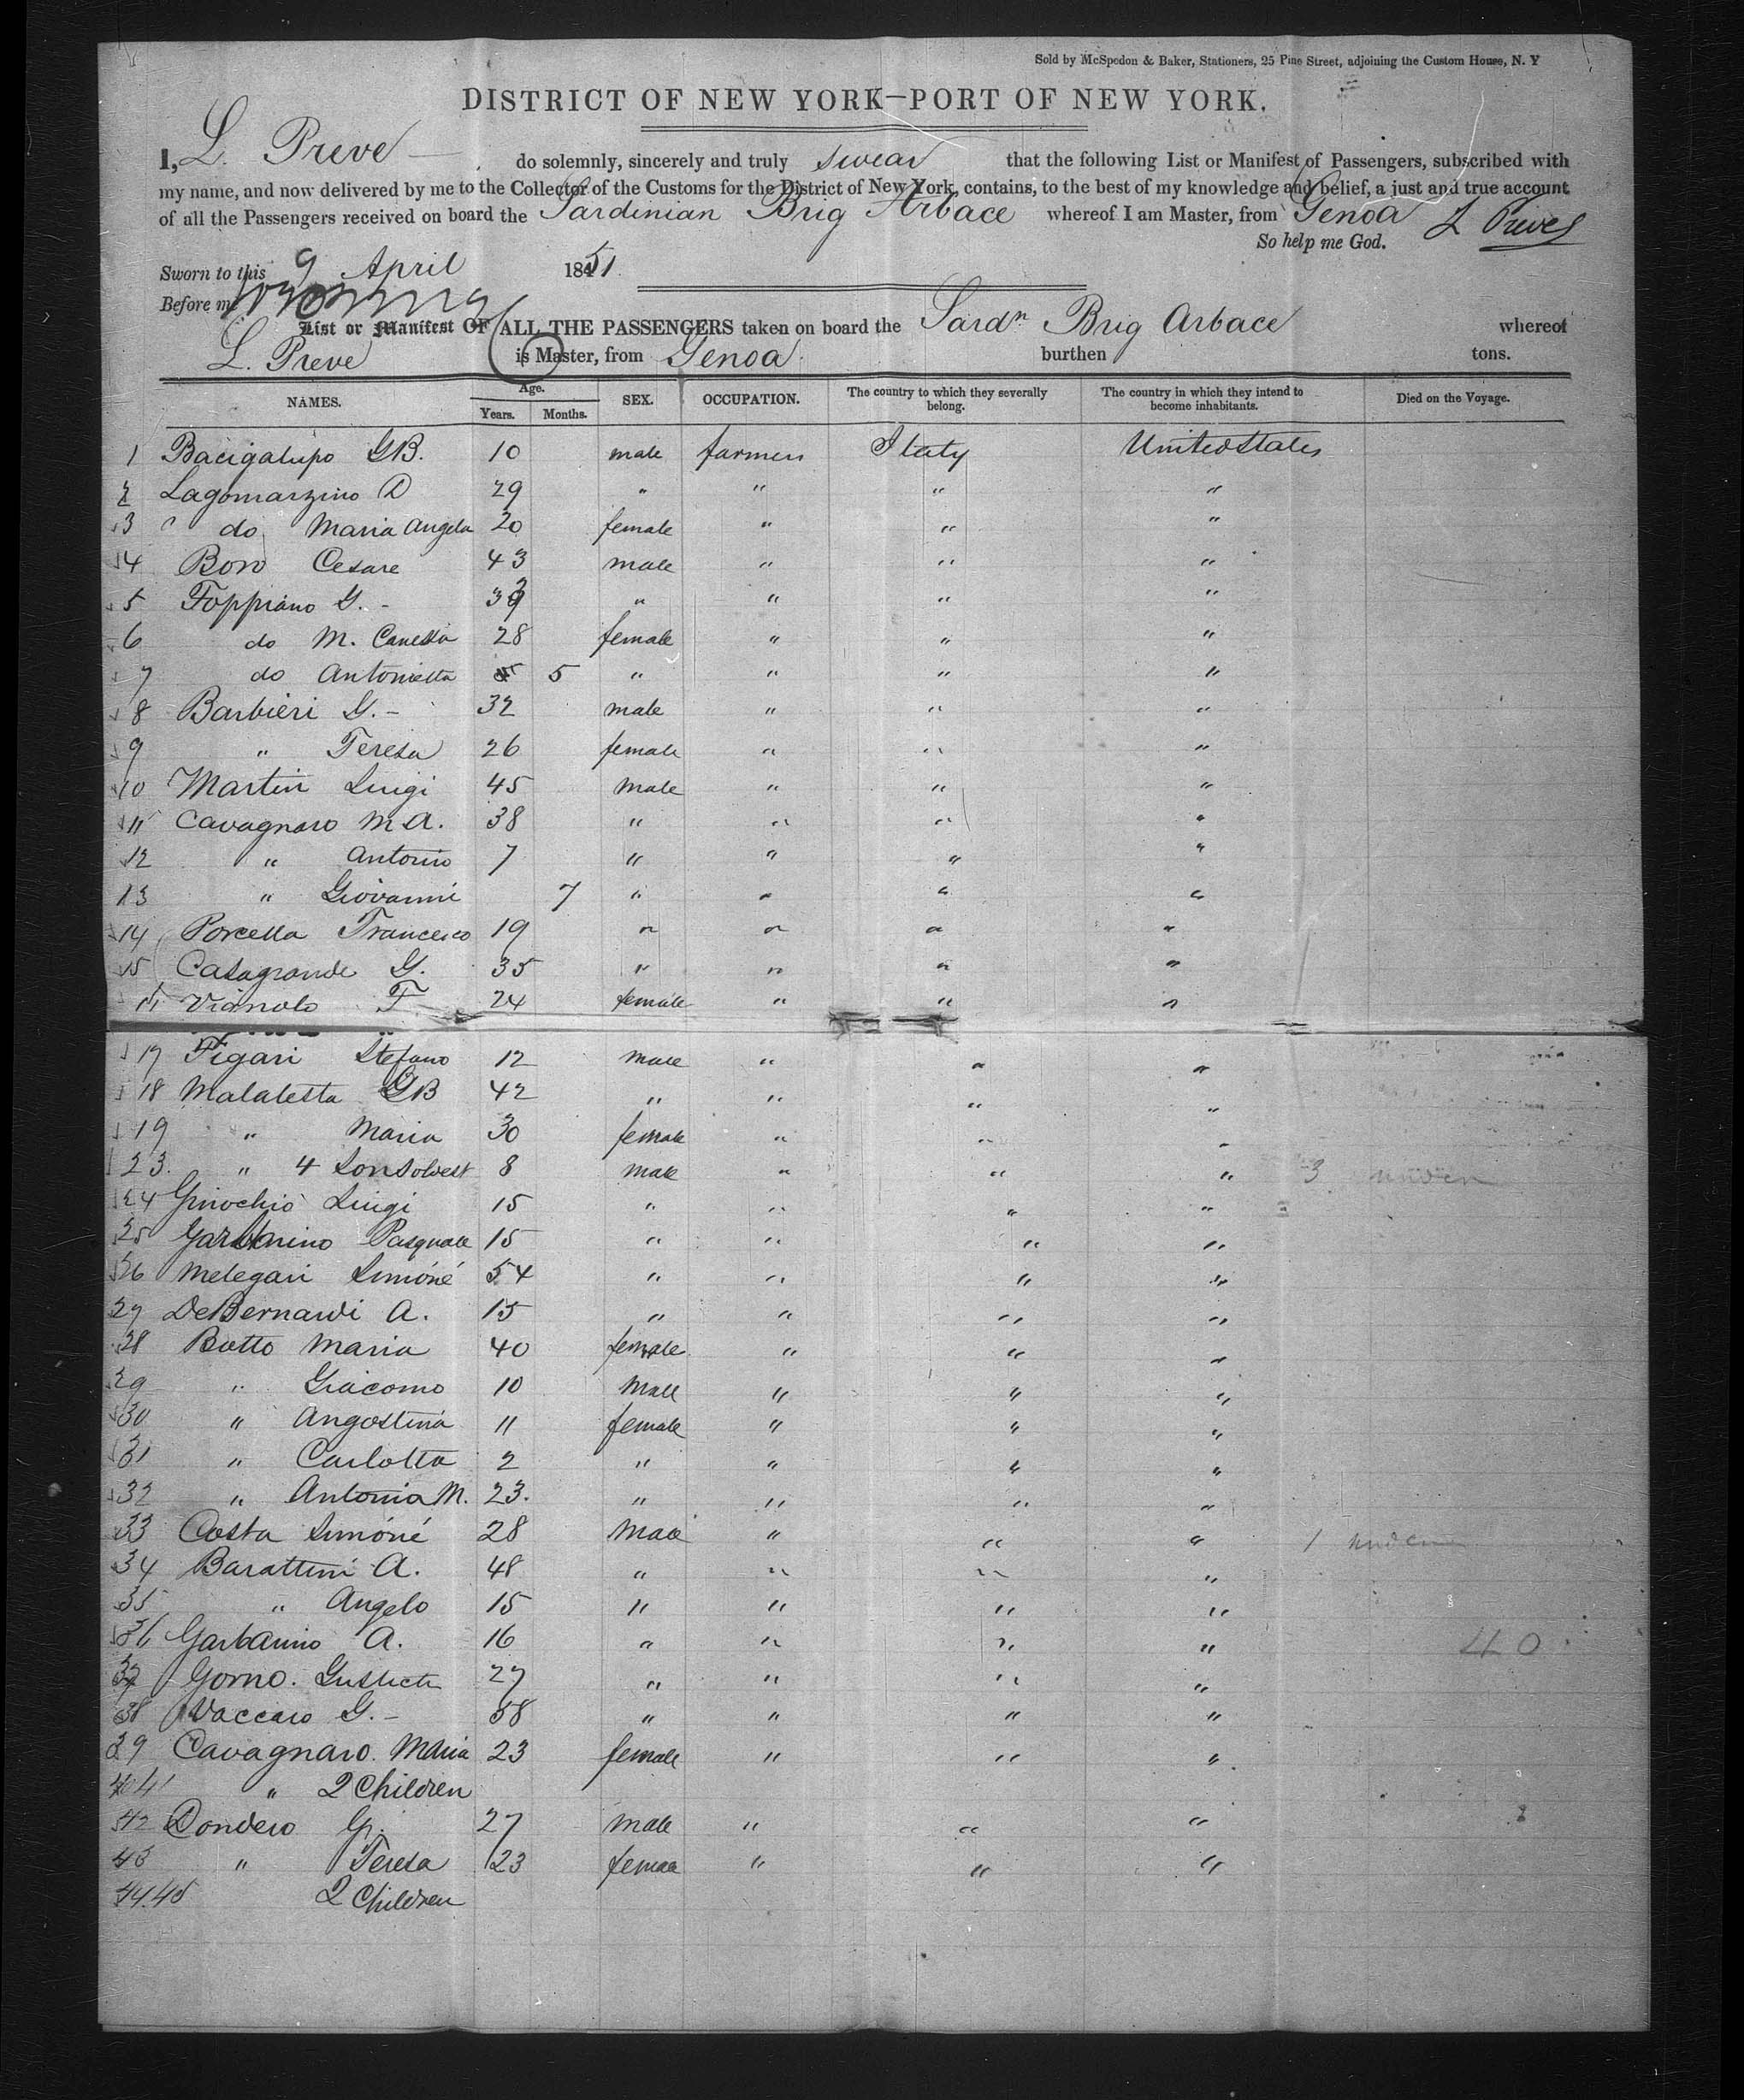 Sold by McSpedon & Baker, Stationers, 25 Pine Street, adjoining the Custom House, N. Y
DISTRICT OF NEW YORK—PORT OF NEW YORK.
I, L. Preve do solemnly, sincerely and truly swear that the following List or Manifest of Passengers, subscribed with
my name, and now delivered by me to the Collector of the Customs for the District of New York, contains, to the best of my knowledge and belief, a just and true account
of all the Passengers received on board the Sardinian Brig Arbace whereof I am Master, from Genoa L Preve
So help me God.
Sworn to this 9 April 1851
Before me
List or Manifest OF ALL THE PASSENGERS taken on board the Sardn Brig Arbace whereof
L. Preve is Master, from Genoa burthen tons.
NAMES. Age. Years. Months. SEX. OCCUPATION. The country to which they severally belong. The country in which they intend to become inhabitants. Died on the Voyage.
1 Bacigalupo GB. 10 male farmers Italy United States
2 Lagomarzino D 29 " " " "
3 " do Maria Angela 20 female " " "
4 Bovo Cesare 43 male " " "
5 Foppiano G. - 39 " " " "
6 do M. Canessa 28 female " " "
7 do Antonietta 5 " " " "
8 Barbieri G. - 32 male " " "
9 " Teresa 26 female " " "
10 Martin Luigi 45 male " " "
11 Cavagnaro M A. 38 " " " "
12 " Antonio 7 " " " "
13 " Giovanni 7 " " " "
14 Porcella Francesco 19 " " " "
15 Casagrande G. 35 " " " "
16 Vignolo F 24 female " " "
17 Figari Stefano 12 male " " "
18 Malatesta GB 42 " " " "
19 " Maria 30 female " " "
23. " 4 Sons oldest 8 male " " " 3
24 Ginochio Luigi 15 " " " "
25 Garbarino Pasquale 15 " " " "
26 Melegari Simóné 54 " " " "
27 DeBernardi A. 15 " " " "
28 Botto Maria 40 female " " "
29 " Giacomo 10 male " " "
30 " Angostina 11 female " " "
31 " Carlotta 2 " " " "
32 " Antonia M. 23. " " " "
33 Costa Simóné 28 male " " " 1
34 Barattini A. 48 " " " "
35 " Angelo 15 " " " "
36 Garbarino A. 16 " " " " 40
37 Gorno. 27 " " " "
38 Vaccaro G. - 58 " " " "
39 Cavagnaro. Maria 23 female " " "
40 41 " 2 Children
42 Dondero G. 27 male " " "
43 " Teresa 23 female " " "
44.45 2 Children